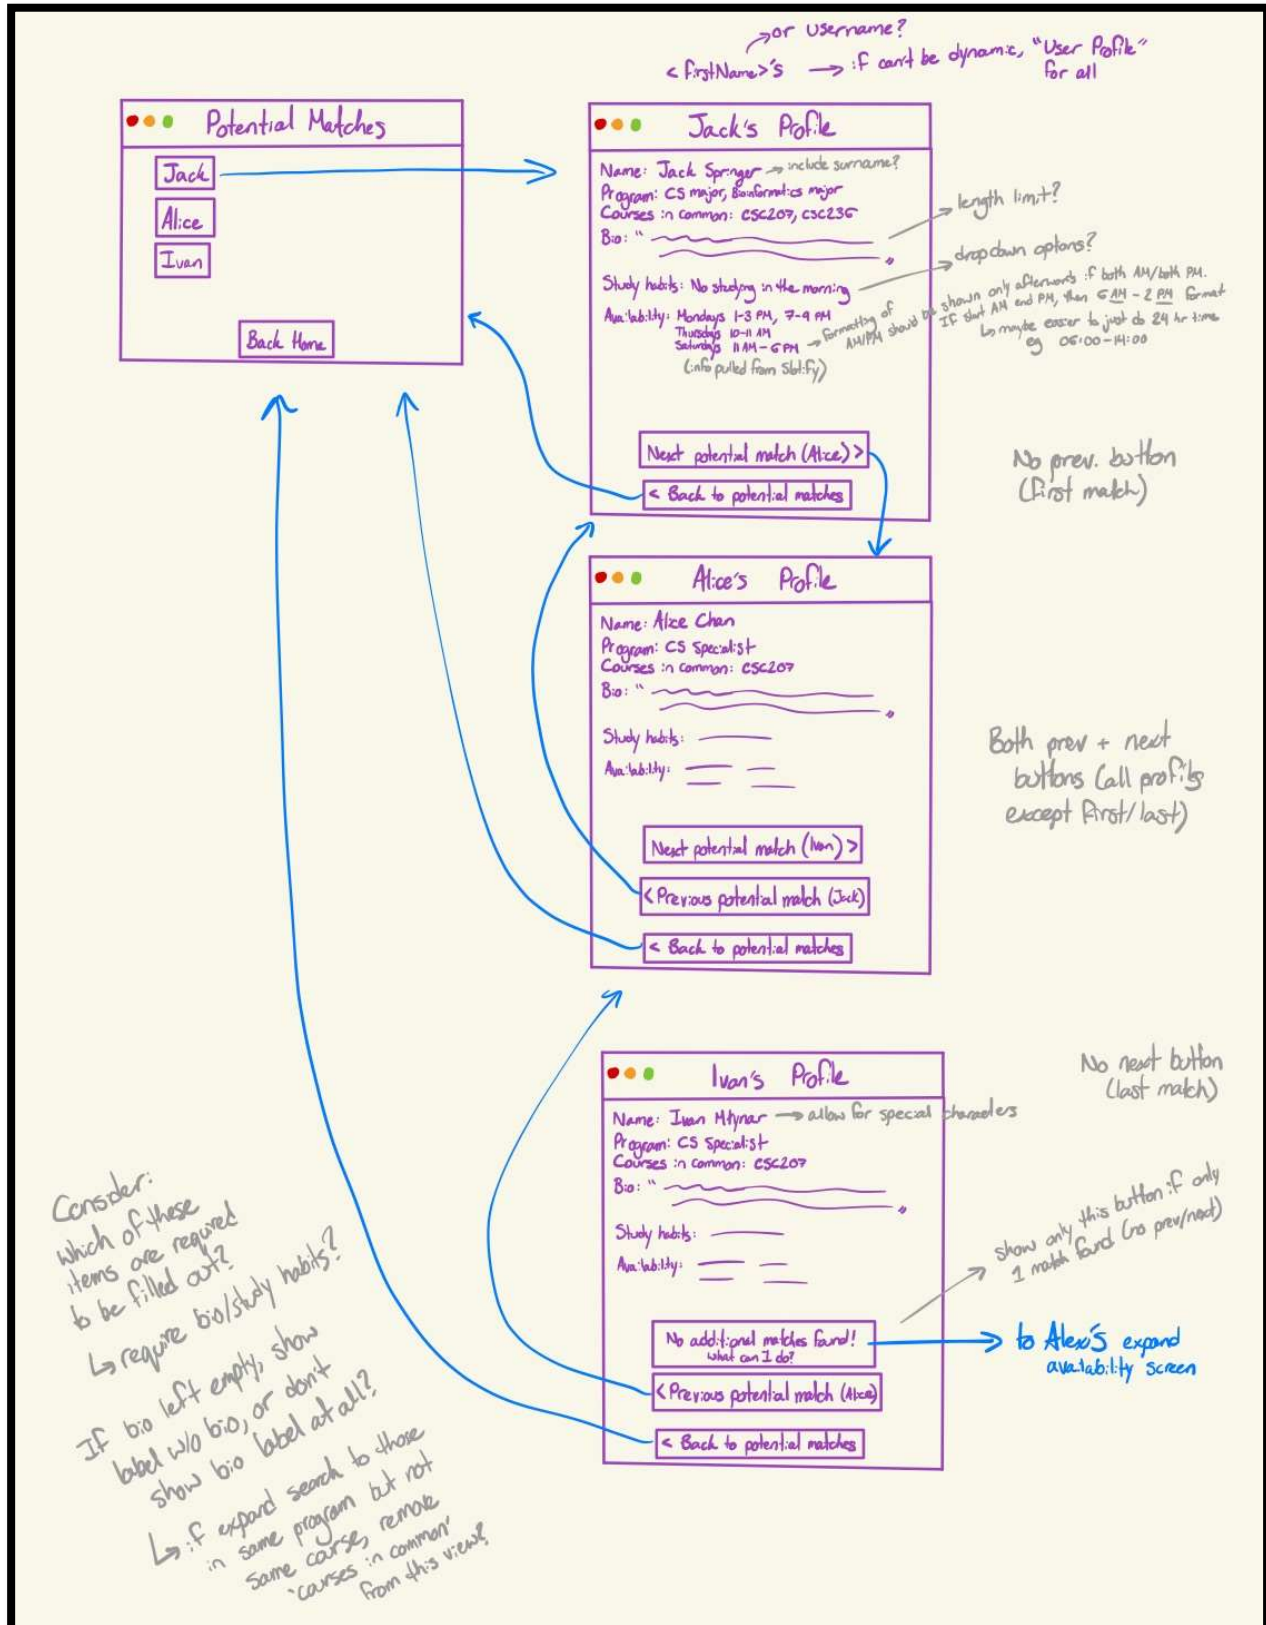 or username?
<firstName>'s → if can't be dynamic, "User Profile"
for all
Potential Matches
Jack
Alice
Ivan
Back Home
Jack's Profile
Name: Jack Springer → include surname?
Program: CS major, Bioinformatics major
Courses in common: CSC207, CSC236
Bio: " "
length limit?
Study habits: No studying in the morning
dropdown options?
Availability: Mondays 1-3 PM, 7-9 PM
Thursdays 10-11 AM
Saturdays 11 AM - 6 PM
(info pulled from Slotify)
→ formatting of
AM/PM should be shown only afterwards if both AM/both PM.
If start AM end PM, then 6 AM - 2 PM format
↳ maybe easier to just do 24 hr time
eg 06:00-14:00
Next potential match (Alice) >
< Back to potential matches
No prev. button
(first match)
Alice's Profile
Name: Alice Chan
Program: CS Specialist
Courses in common: CSC207
Bio: " "
Study habits:
Availability:
Next potential match (Ivan) >
< Previous potential match (Jack)
< Back to potential matches
Both prev + next
buttons (all profiles
except first/last)
Ivan's Profile
Name: Ivan Młynar → allow for special characters
Program: CS Specialist
Courses in common: CSC207
Bio: " "
Study habits:
Availability:
No additional matches found!
What can I do?
< Previous potential match (Alice)
< Back to potential matches
No next button
(last match)
show only this button if only
1 match found (no prev/next)
to Alex's expand
availability screen
Consider:
which of these
items are required
to be filled out?
↳ require bio/study habits?
If bio left empty, show
label w/o bio, or don't
show bio label at all?
↳ if expand search to those
in same program but not
same course, remove
'courses in common'
from this view?